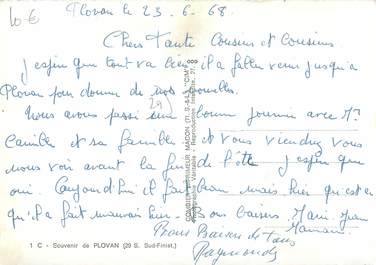 10 €
Plovan le 23-6-68.
Chers Tante Cousins et Cousines
J'espère que tout va bien il a fallu venir jusqu'a
Plovan pour donner de nos nouvelles.
(29)
Nous avons passé une bonne journée avec Mr
et sa famille et vous viendrez vous
nous voir avant la fin de l'été J'espère que
oui. Aujourd'hui il fait beau mais hier qu'est ce
qu'il a fait mauvais hier. Bons baisers.
Bons Baisers de tous
Raymonde
1 C - Souvenir de PLOVAN (29 S. Sud-Finist.)
COMBIER IMPRIMEUR MACON (TEL. S.-&-L.) "CIM"